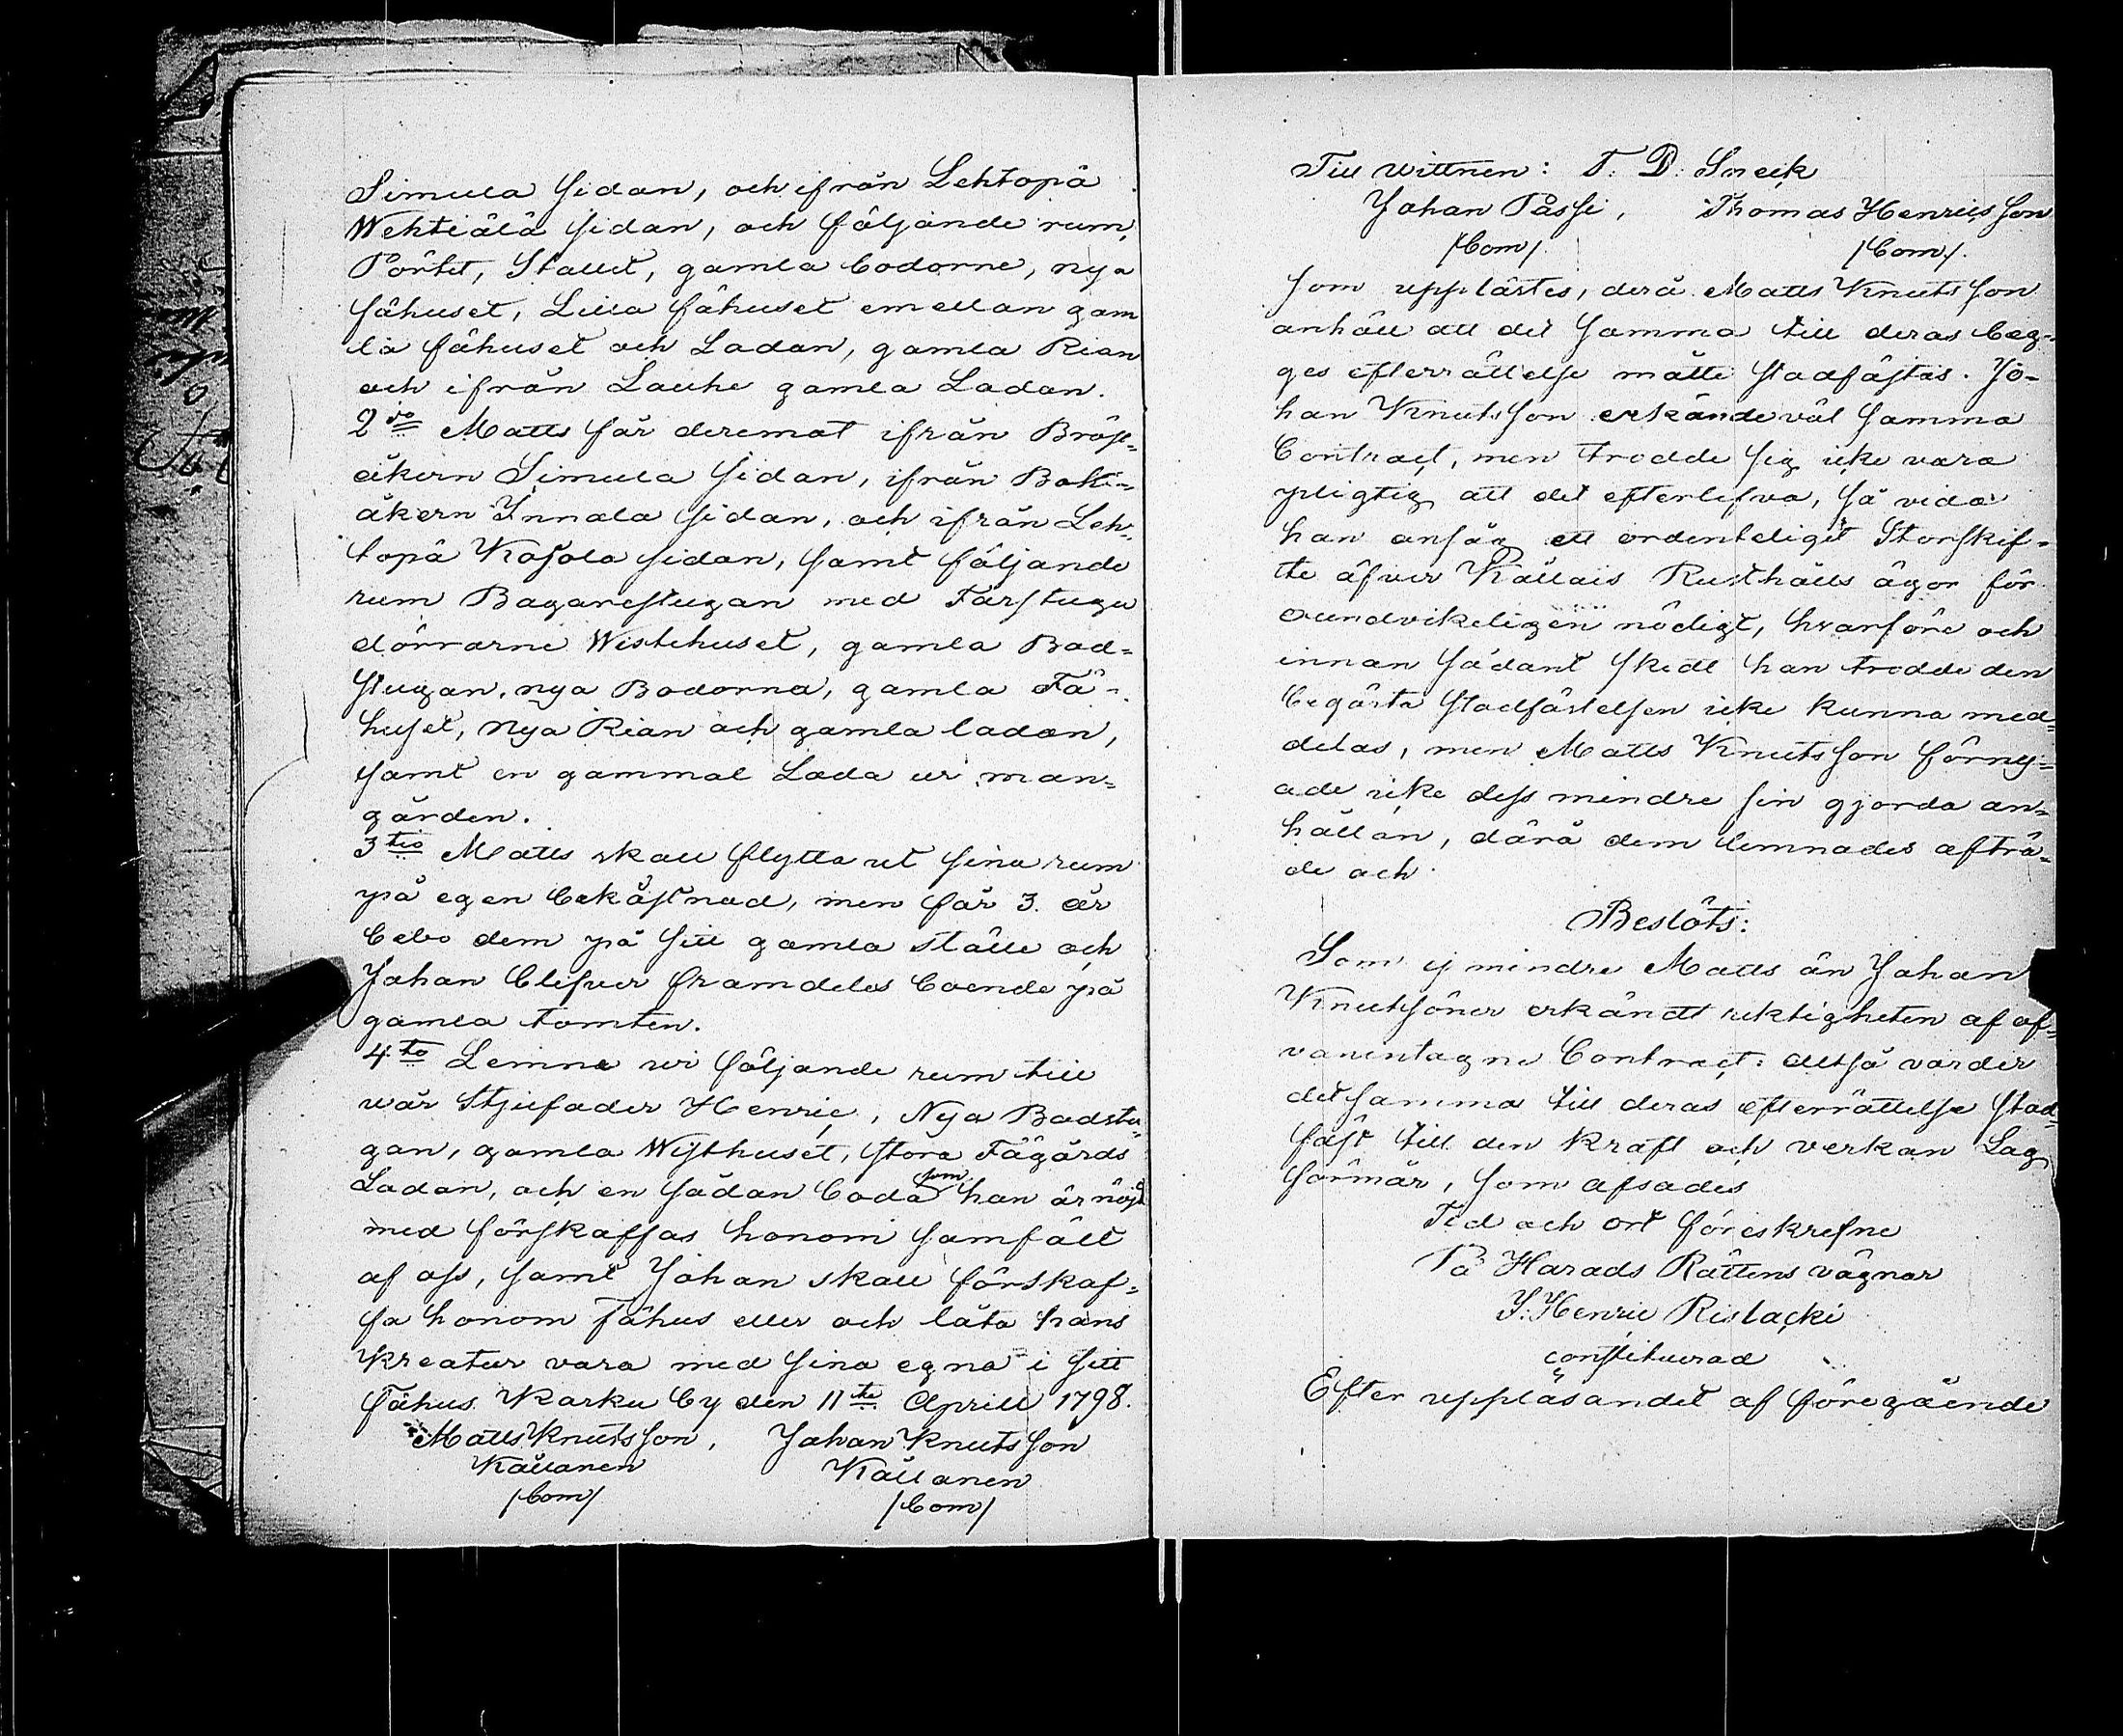 Simula sidan, och ifrån Lehtopä
Wehtiälä sidan, och följande rum,
Pörtet, Stallet, gamla bodorne, nya
fähuset, Lilla fähuset emellan gam
la fähuset och Ladan, gamla Rian
och ifrån Lauhe gamla Ladan.
2do Matts får deremot ifrån Bröst-
åkern Simula sidan, ifrån Baki-
åkern Innala sidan, och ifrån Leh-
topä Kosola sidan, samt följande
rum Bagarestugan med Farstugu
dörrarne Wistehuset, gamla Bad-
stugan, nya Bodorna, gamla Fä-
huset, Nya Rian och gamla ladan,
samt en gammal Lada ur man-
gården.
3tio Matts skall flytta ut sina rum
på egen bekåstnad, men får 3. år
bebo dem på sitt gamla ställe och
Johan blifver framdeles boende på
gamla tomten.
4to Lemna wi följande rum till
wår Stjufader Henric, Nya Badstu-
gan, gamla Wisthuset, stora Fägårds
Ladan, och en sådan boda som han är nöjd
med förskaffas honom samfält
af oss, samt Johan skall förskaf-
fa honom fähus eller och låta hans
Kreatur vara med sina egna i sitt
fähus. Karku by den 11te Aprill 1798.
Matts Knutsson, Johan Knutsson
Källanen Källanen
/bom/ /bom/
Till wittnen: T. D. Sneik
Johan Passi, Thomas Henricsson
/bom/. /bom/.
som upplästes, derå Matts Knutsson
anhöll att det samma till deras beg-
ges efterrättelse måtte stadfästas. Jo-
han Knutsson erkände väl samma
Contract, men trodde sig icke vara
pligtig att det efterlefva, så vida
han ansåg ett ordenteligit Storskif-
te öfver Källais Rusthålls ägor för
oundvikeligen nödigt, hvarföre och
innan sådant skedt han trodde den
begärta stadfästelsen icke kunna med-
delas, men Matts Knutsson förny-
ade icke dess mindre sin gjorda an-
hållan, därå dem lemnades afträ-
de och
Beslöts:
Som ej mindre Matts än Johan
Knutsöner erkändt riktigheten af of-
vanintagne Contract: altså varder
detsamma till deras efterrättelse stad-
fäst till den kraft och verkan Lag
förmår, som afsades
Tid och ort föreskrefne
På Härads Rättens vägnar
J. Henric Rislacki
constituerad
Efter uppläsandet af föregående